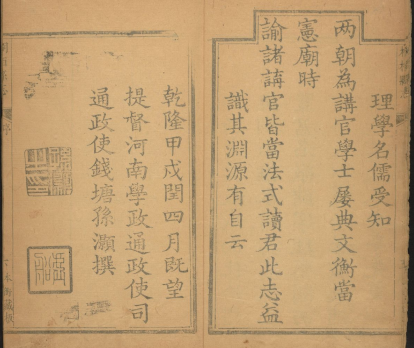 理學名儒受知
兩朝為講官學士屢典文衡當
憲廟時
諭諸講官皆當法式讀君此志益
識其淵源有自云
乾隆甲戌閏四月既望
提督河南學政通政使司
通政使錢塘孫灝撰